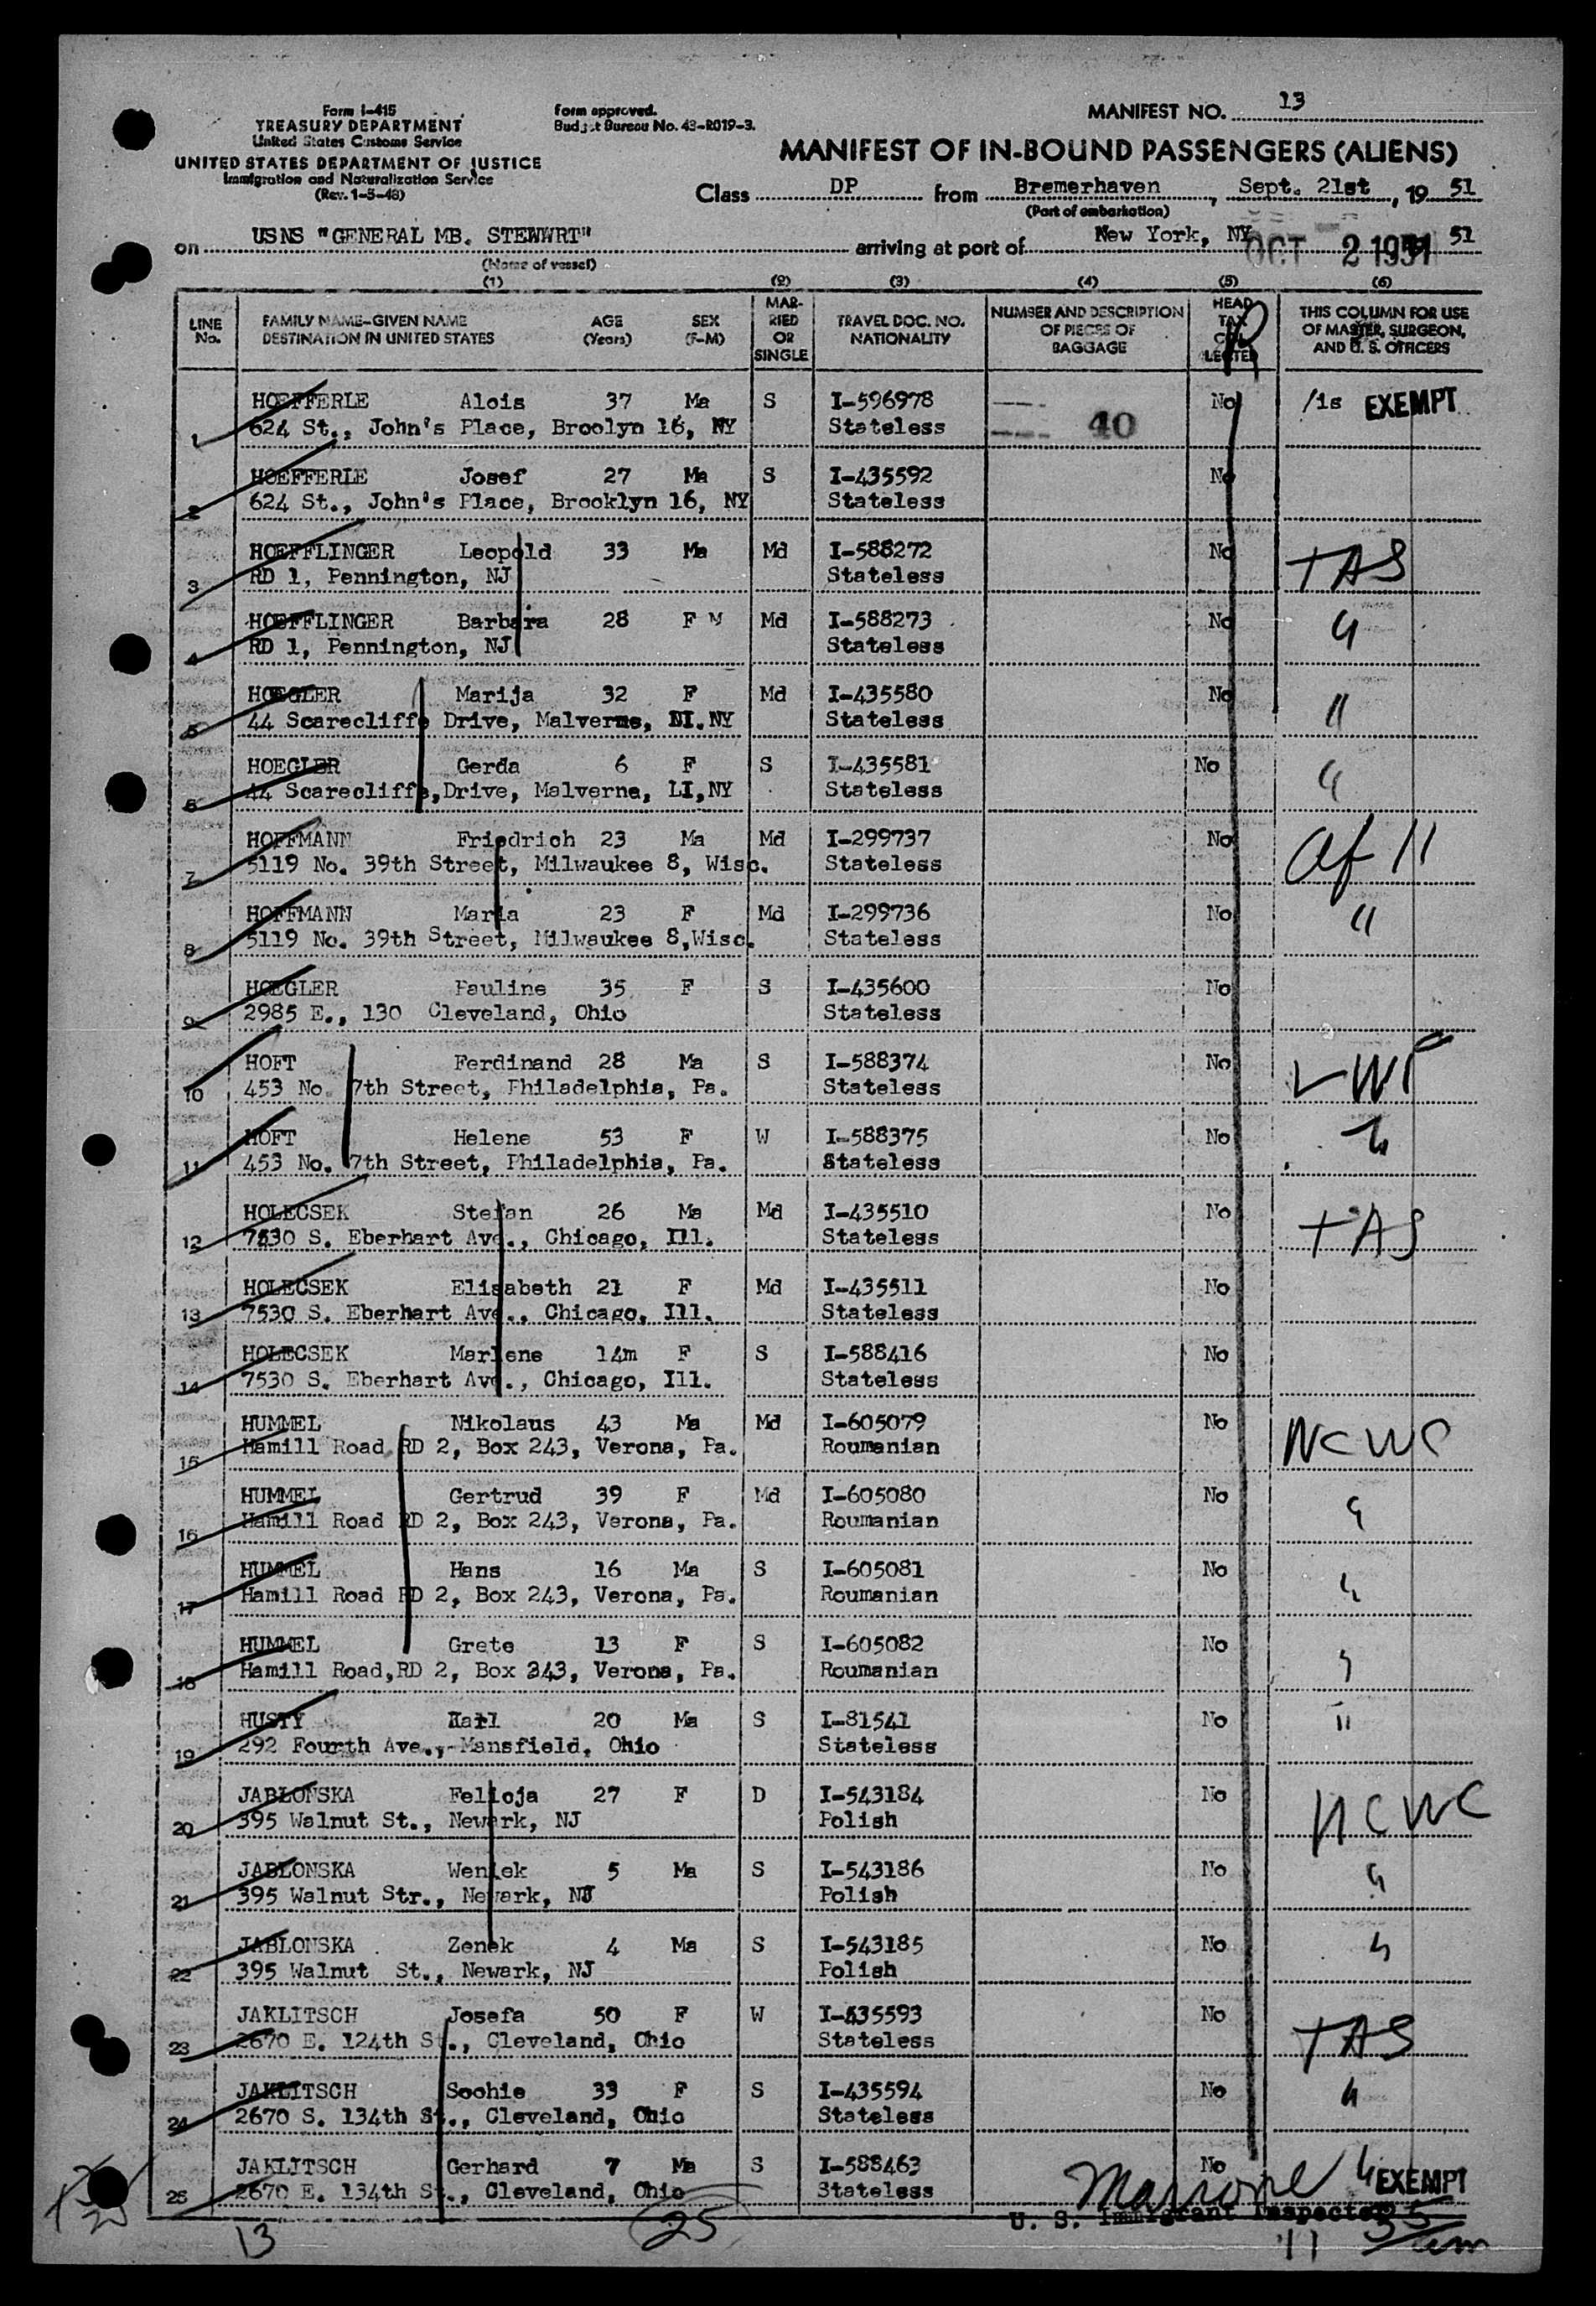 Form I-415
TREASURY DEPARTMENT
United States Customs Service
UNITED STATES DEPARTMENT OF JUSTICE
Immigration and Naturalization Service
(Rev. 1-5-48)
Form approved.
Budget Bureau No. 43-R019-3.
MANIFEST NO. 13
MANIFEST OF IN-BOUND PASSENGERS (ALIENS)
Class DP from Bremerhaven, Sept. 21st, 19 51
(Port of embarkation)
on USNS "GENERAL MB. STEWWRT" arriving at port of New York, NY OCT 2 1951 51
(Name of vessel)
(1) (2) (3) (4) (5) (6)
LINE No. FAMILY NAME-GIVEN NAME DESTINATION IN UNITED STATES AGE (Years) SEX (F-M) MAR-RIED OR SINGLE TRAVEL DOC. NO. NATIONALITY NUMBER AND DESCRIPTION OF PIECES OF BAGGAGE HEAD TAX COL-LECTED THIS COLUMN FOR USE OF MASTER, SURGEON, AND U. S. OFFICERS
HOEFFERLE Alois 37 Ma S I-596978 No /is EXEMPT
1 624 St., John's Place, Broolyn 16, NY Stateless 40
HOEFFERLE Josef 27 Ma S I-435592 No
2 624 St., John's Place, Brooklyn 16, NY Stateless
HOEFFLINGER Leopold 33 Ma Md I-588272 No TAS
3 RD 1, Pennington, NJ Stateless
HOEFFLINGER Barbara 28 F M Md I-588273 No "
4 RD 1, Pennington, NJ Stateless
HOEGLER Marija 32 F Md I-435580 No "
5 44 Scarecliffe Drive, Malverne, NY Stateless
HOEGLER Gerda 6 F S I-435581 No "
6 44 Scarecliffe,Drive, Malverne, LI,NY Stateless
HOFFMANN Friedrich 23 Ma Md I-299737 No
7 5119 No. 39th Street, Milwaukee 8, Wisc. Stateless
HOFFMANN Maria 23 F Md I-299736 No "
8 5119 No. 39th Street, Milwaukee 8,Wisc. Stateless
HOEGLER Pauline 35 F S I-435600 No
9 2985 E., 130 Cleveland, Ohio Stateless
HOFT Ferdinand 28 Ma S I-588374 No LWF
10 453 No. 7th Street, Philadelphia, Pa. Stateless
HOFT Helene 53 F W I-588375 No "
11 453 No. 7th Street, Philadelphia, Pa. Stateless
HOLECSEK Stefan 26 Ma Md I-435510 No TAS
12 7530 S. Eberhart Ave., Chicago, Ill. Stateless
HOLECSEK Elisabeth 21 F Md I-435511 No
13 7530 S. Eberhart Ave., Chicago, Ill. Stateless
HOLECSEK Marlene 14m F S I-588416 No
14 7530 S. Eberhart Ave., Chicago, Ill. Stateless
HUMMEL Nikolaus 43 Ma Md I-605079 No NCWC
15 Hamill Road RD 2, Box 243, Verona, Pa. Roumanian
HUMMEL Gertrud 39 F Md I-605080 No "
16 Hamill Road RD 2, Box 243, Verona, Pa. Roumanian
HUMMEL Hans 16 Ma S I-605081 No "
17 Hamill Road RD 2, Box 243, Verona, Pa. Roumanian
HUMMEL Grete 13 F S I-605082 No "
18 Hamill Road,RD 2, Box 243, Verona, Pa. Roumanian
HUSTY Karl 20 Ma S I-81541 No "
19 292 Fourth Ave., Mansfield, Ohio Stateless
JABLONSKA Felicja 27 F D I-543184 No NCWC
20 395 Walnut St., Newark, NJ Polish
JABLONSKA Weniek 5 Ma S I-543186 No "
21 395 Walnut Str., Newark, NJ Polish
JABLONSKA Zenek 4 Ma S I-543185 No "
22 395 Walnut St., Newark, NJ Polish
JAKLITSCH Josefa 50 F W I-435593 No TAS
23 2670 E. 124th St., Cleveland, Ohio Stateless
JAKLITSCH Soohie 33 F S I-435594 No "
24 2670 S. 134th St., Cleveland, Ohio Stateless
JAKLITSCH Gerhard 7 Ma S I-588463 No " EXEMPT
25 2670 E. 134th St., Cleveland, Ohio Stateless
U. S. Immigrant Inspector
13 25 11